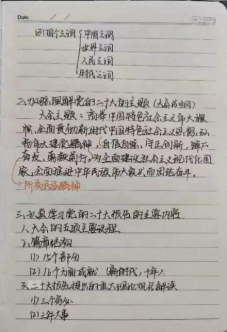 Date. / /
(4) 四个之问 { 中国之问
世界之问
人民之问
时代之问
二、准确理解党的二十大的主题（大会的主题）
大会主题：高举中国特色社会主义伟大旗
帜，全面贯彻新时代中国特色社会主义思想，弘
扬伟大建党精神，自信自强、守正创新，踔厉
奋发、勇毅前行，为全面建设社会主义现代化国
家、全面推进中华民族伟大复兴而团结奋斗。
三、认真学习党的二十大报告的主要内容
1、大会的五项主要议程
2、篇章结构
(1) 15个部分
(2)
二十大报告提出的重大理论观点解读
(1) 三个务必
(2) 三件大事